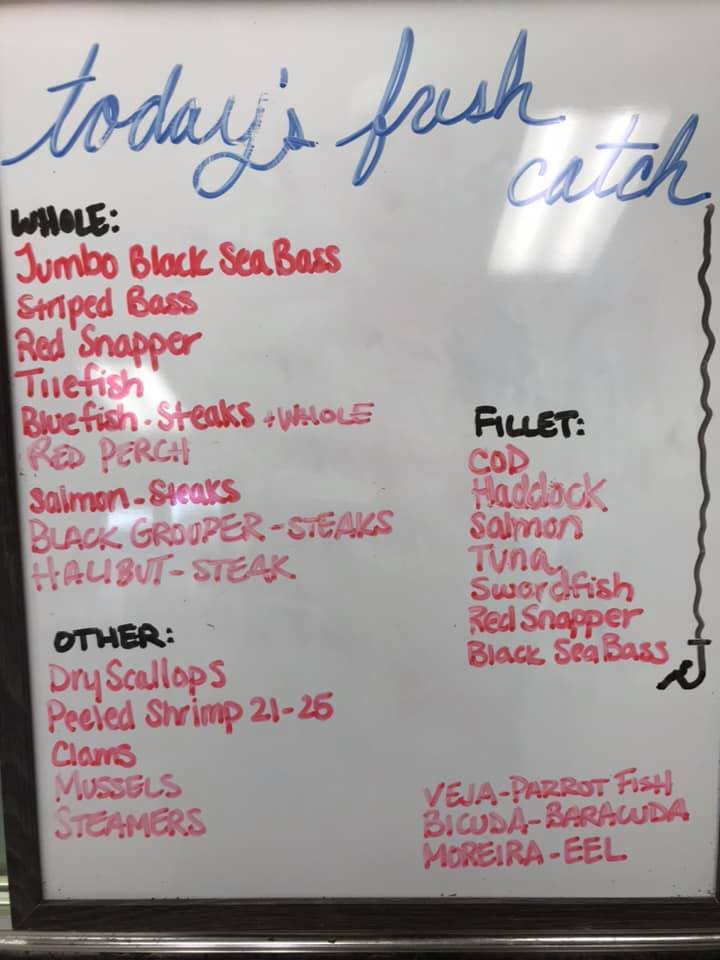 today's fresh
catch
WHOLE:
Jumbo Black Sea Bass
Striped Bass
Red Snapper
Tilefish
Bluefish - Steaks + WHOLE
RED PERCH
Salmon - Steaks
BLACK GROUPER - STEAKS
HALIBUT - STEAK
FILLET:
COD
Haddock
Salmon
Tuna
Swordfish
Red Snapper
Black Sea Bass
OTHER:
Dry Scallops
Peeled Shrimp 21-25
Clams
MUSSELS
STEAMERS
VEJA-PARROT FISH
BICUDA-BARACUDA
MOREIRA-EEL